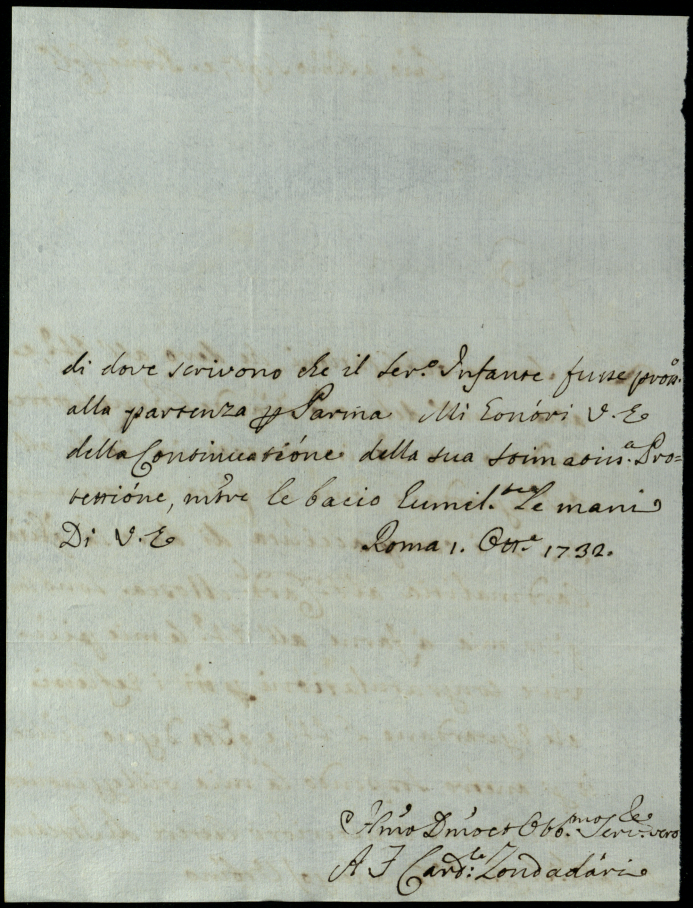 di dove scrivono che il Ser.º Infante fusse pron.º
alla partenza p Parma Mi Eonóri V. E
della Continuatióne della sua stimatiss.ª Pro=
tettióne, mtre le bacio Eumil.te le mani
Di V. E Roma 1. Ott.e 1732.
Hmo Dmo et Obb.mo Serv.re vero
A F Card:le Zondadári